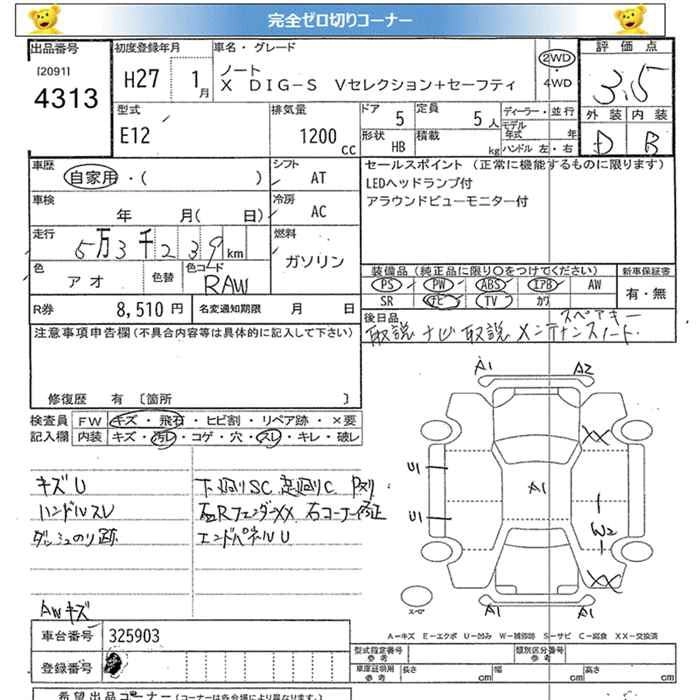 完全ゼロ切りコーナー
出品番号 初度登録年月 車名・グレード 評価点
[2091] H27 1月 ノート 2WD・4WD 3.5
4313 X DIG-S Vセレクション+セーフティ
型式 排気量 ドア 5 定員 5人 ディーラー・並行 外装 内装
E12 1200cc 形状 HB 積載 kg モデル年式 年 ハンドル 左・右 D B
車歴 シフト セールスポイント (正常に機能するものに限ります)
自家用・( ) AT LEDヘッドランプ付
車検 冷房 アラウンドビューモニター付
年 月( 日) AC
走行 燃料
5万3千239km ガソリン
色 色替 色コード 装備品(純正品に限り〇をつけてください) 新車保証書
アオ RAW PS PW ABS エアB AW 有・無
R券 8,510円 名変通知期限 月 日 SR ナビ TV カワ
注意事項申告欄(不具合内容等は具体的に記入して下さい) 後日品 スペアキー
取説 ナビ取説 メンテナンスノート
修復歴 有 〔箇所 〕
検査員 FW キズ・飛石・ヒビ割・リペア跡・×要
記入欄 内装 キズ・汚レ・コゲ・穴・スレ・キレ・破レ
A1 A2
XX
U1
A1
U1
W2
XX
A1 A1
スペア
キズU 下廻りSC 足廻りC
ハンドルスレ 右RフェンダーXX 右コーナー修正
ダッシュのり跡 エンドパネルU
AWキズ
A-キズ E-エクボ U-凹み W-補修跡 S-サビ C-腐食 XX-交換済
車台番号 325903 型式指定番号 参考 類別区分番号 参考
登録番号 車体証明用 参考 長さ cm 幅 cm 高さ cm
希望出品コーナー (コーナーは各会場により異なります)